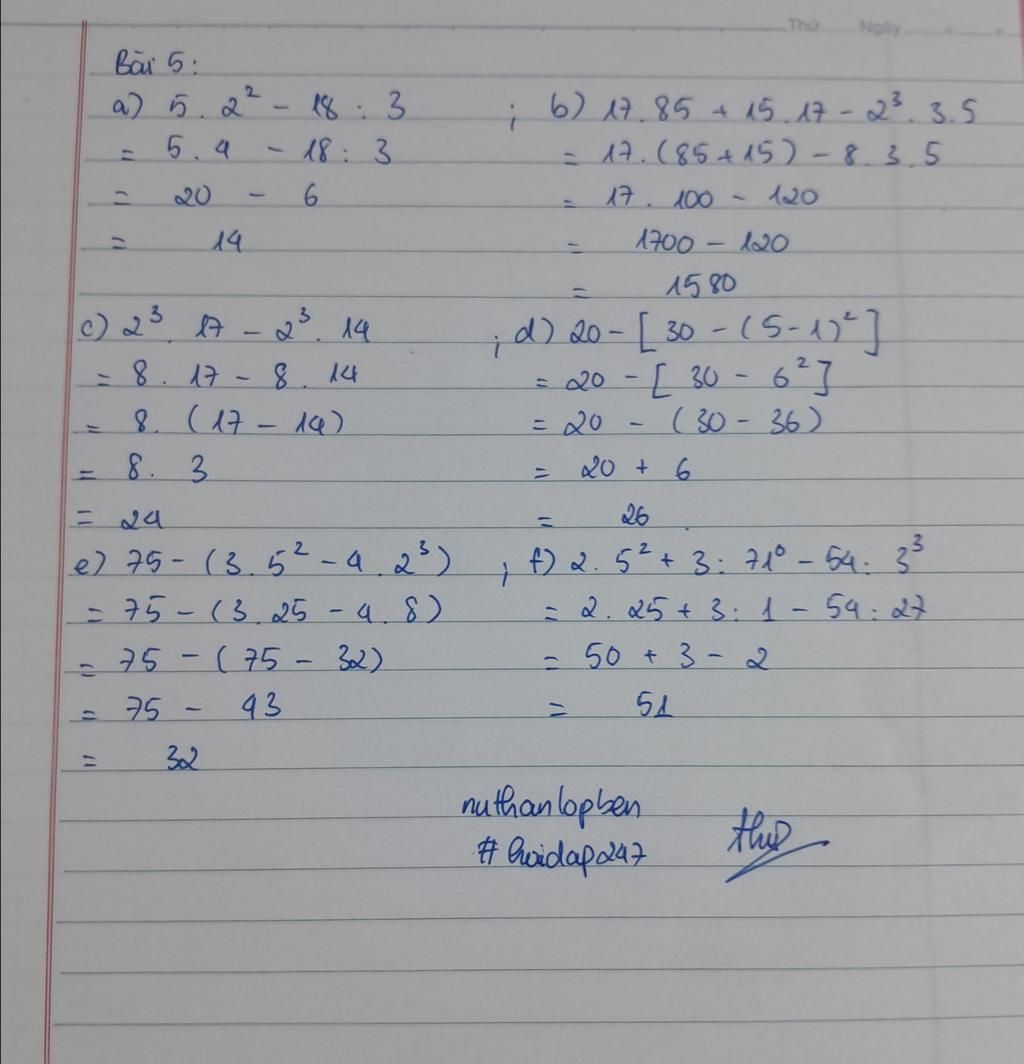 Thứ Ngày
Bài 5:
a) 5 . 2² - 18 : 3 ; b) 17.85 + 15.17 - 2³ . 3.5
= 5 . 4 - 18 : 3 = 17.(85+15) - 8 . 3 . 5
= 20 - 6 = 17 . 100 - 120
= 14 = 1700 - 120
= 1580
c) 2³ . 17 - 2³ . 14 ; d) 20 - [ 30 - (5-1)² ]
= 8 . 17 - 8 . 14 = 20 - [ 30 - 6² ]
= 8 . (17 - 14) = 20 - (30 - 36)
= 8 . 3 = 20 + 6
= 24 = 26
e) 75 - (3 . 5² - 4 . 2³) ; f) 2 . 5² + 3 : 71⁰ - 54 : 3³
= 75 - (3 . 25 - 4 . 8) = 2 . 25 + 3 : 1 - 54 : 27
= 75 - (75 - 32) = 50 + 3 - 2
= 75 - 43 = 51
= 32
nuthanlopben
#hoidap247